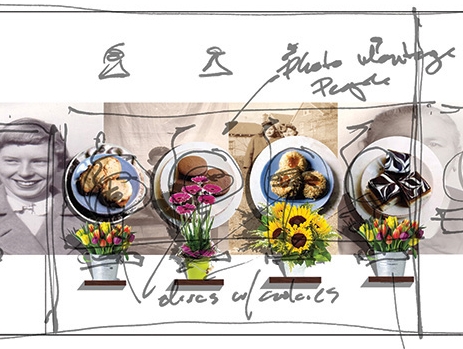 Photo montage
People
discs w/ cookies